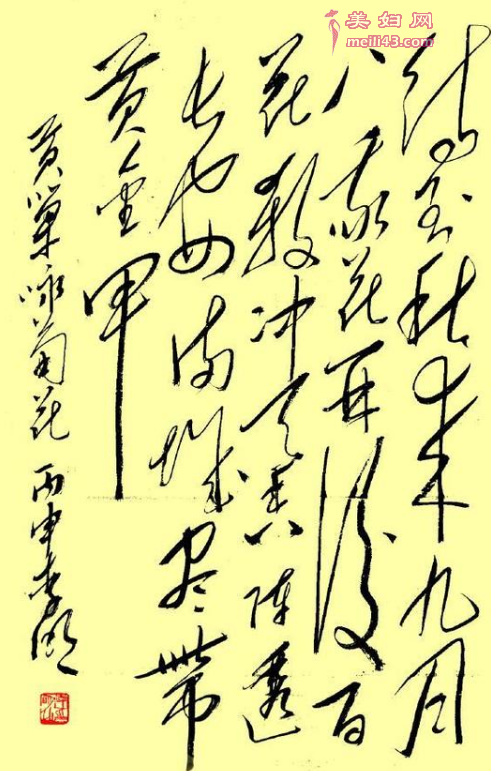 美妇网
meili43.com
待到秋来九月
八我花开後百
花殺冲天香阵透
长安满城尽带
黄金甲
黄巢咏菊花 丙申李